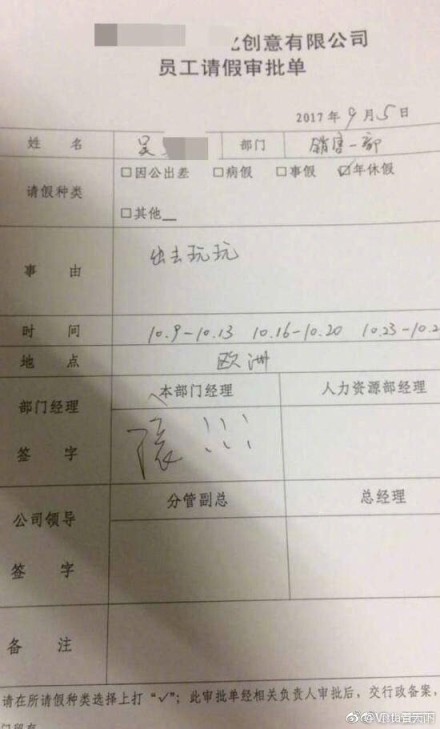 创意有限公司
员工请假审批单
2017年9月5日
姓 名 吴 部门 销售一部
请假种类 □因公出差 □病假 □事假 ☑年休假
□其他__
事 由 出去玩玩
时 间 10.9-10.13 10.16-10.20 10.23-10.2
地 点 欧洲
部门经理 本部门经理 人力资源部经理
签 字 !!!
公司领导 分管副总 总经理
签 字
备 注
请在所请假种类选择上打“√”;此审批单经相关负责人审批后,交行政备案,